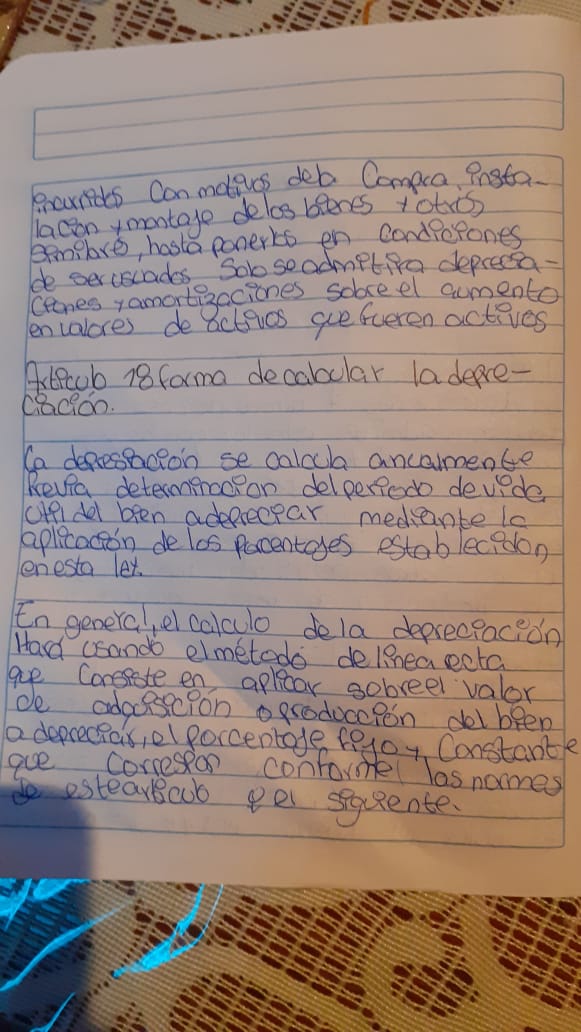 incurridos Con motivos de la Compra, insta-
lación y montaje de los bienes y otros
semibre, hasta ponerlos en condiciones
de ser usados Solo se admitira deprecia-
ciones y amortizaciones sobre el aumento
en valores de activos que fueren activos
Articulo 18 forma de calcular la depre-
ciación.
La depresiación se calcula anualmente
Previa determinacion del periodo de vida
util del bien a depreciar mediante la
aplicación de los pocentajes establecidon
en esta ley.
En general, el calculo de la depreciación
Hará usando el método de linea ecta
que Consiste en aplicar sobre el valor
de adquisición o producción del bien
a depreciar, el porcentaje fijo y Constante
que correspon conforme las normes
de este articulo y el siguiente.